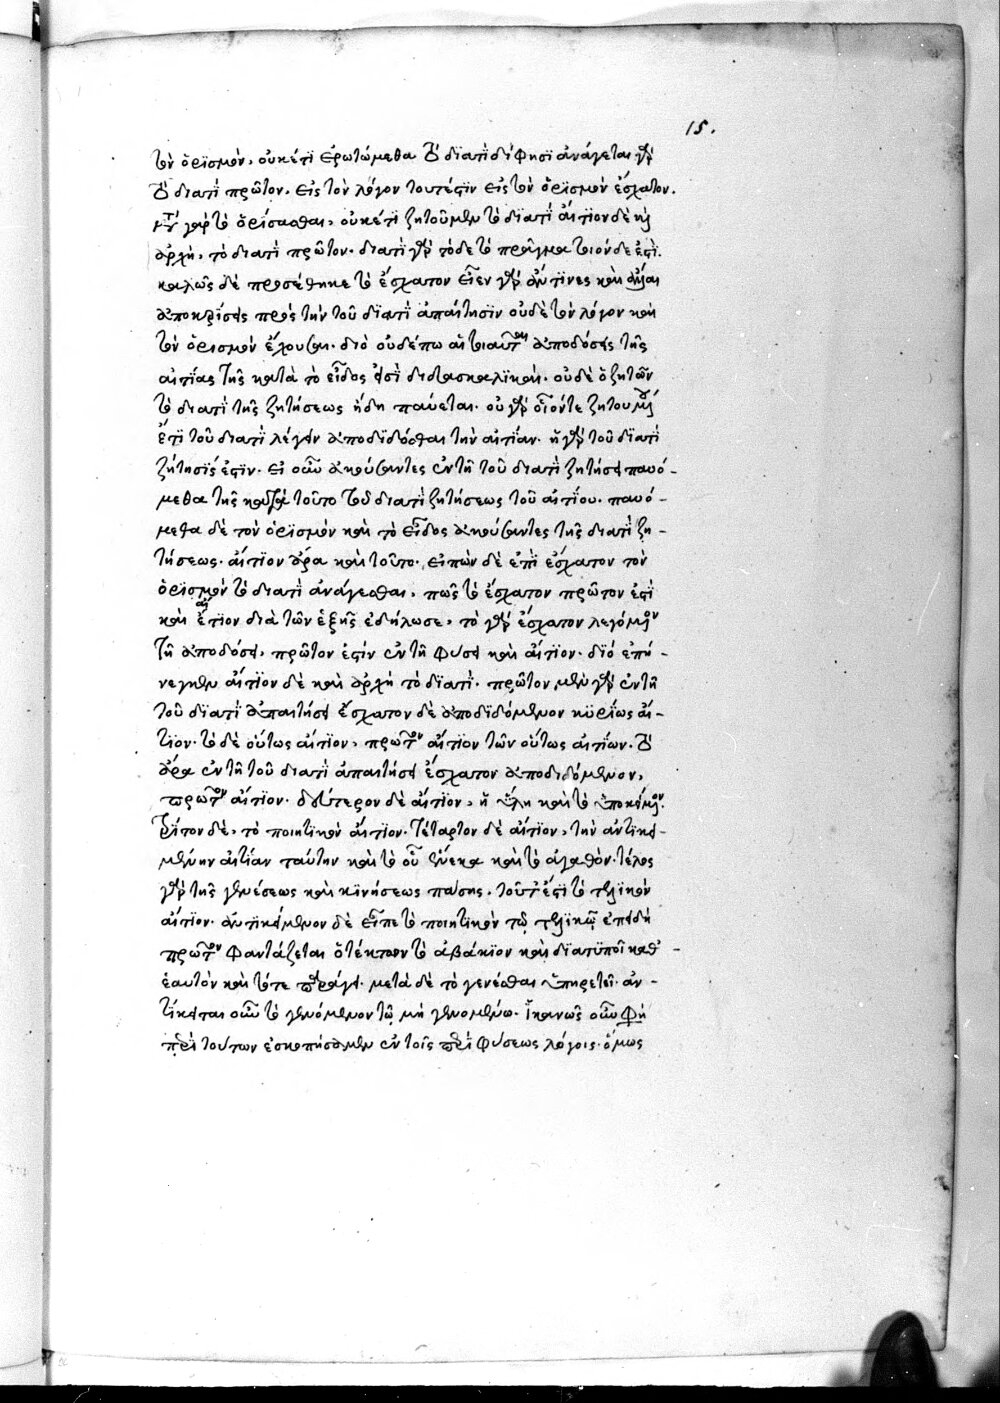 15.
τὸν ὁρισμὸν, οὐκέτι ἐρωτώμεθα τὸ διατί δέ φησι ἀνάγεται γὰρ
τὸ διατί πρῶτον. εἰς τὸν λόγον τουτέστιν εἰς τὸν ὁρισμὸν ἔσχατον.
μετὰ γὰρ τὸ ὁρίσασθαι, οὐκέτι ζητοῦμεν τὸ διατί αἴτιον δὲ καὶ
ἀρχὴ, τὸ διατί πρῶτον. διατί γὰρ τόδε τὸ πρᾶγμα τοιόνδε ἐστί.
καλῶς δὲ προσέθηκε τὸ ἔσχατον εἶεν γὰρ ἄν τινες καὶ ἄλλαι
ἀποκρίσεις πρὸς τὴν τοῦ διατί ἀπαίτησιν οὐδὲ τὸν λόγον καὶ
τὸν ὁρισμὸν ἔχουσαι. διὸ οὐδέπω αἱ τοιαῦται ἀποδόσεις τῆς
αἰτίας τῆς κατὰ τὸ εἶδος εἰσὶ διδασκαλικαί. οὐδὲ ὁ ζητῶν
τὸ διατί τῆς ζητήσεως ἤδη παύεται. οὐ γὰρ οἷόντε ζητουμένου
ἔτι τοῦ διατί λέγειν ἀποδίδοσθαι τὴν αἰτίαν. ἡ γὰρ τοῦ διατί
ζήτησίς ἐστιν. εἰ οὖν ἀκούσαντες ἐν τῇ τοῦ διατί ζητήσει παυό-
μεθα τῆς κατὰ τοῦτο τοῦ διατί ζητήσεως τοῦ αἰτίου. παυό-
μεθα δὲ τὸν ὁρισμὸν καὶ τὸ εἶδος ἀκούσαντες τῆς διατί ζη-
τήσεως. αἴτιον ἄρα καὶ τοῦτο. εἰπὼν δὲ ἐπὶ ἔσχατον τὸν
ὁρισμὸν τὸ διατί ἀνάγεσθαι, πῶς τὸ ἔσχατον πρῶτον ἐστὶ
καὶ αἴτιον διὰ τῶν ἑξῆς ἐδήλωσε, τὸ γὰρ ἔσχατον λεγόμενον
τῇ ἀποδόσει, πρῶτον ἐστὶν ἐν τῇ φύσει καὶ αἴτιον. διό ἐπή-
νεγκεν αἴτιον δὲ καὶ ἀρχὴ τὸ διατί. πρῶτον μὲν γὰρ ἐν τῇ
τοῦ διατί ἀπαιτήσει ἔσχατον δὲ ἀποδιδόμενον κυρίως αἴ-
τιον. τὸ δὲ οὕτως αἴτιον, πρῶτον αἴτιον τῶν οὕτως αἰτίων. τὸ
ἄρα ἐν τῇ τοῦ διατί ἀπαιτήσει ἔσχατον ἀποδιδόμενον,
πρῶτον αἴτιον. δεύτερον δὲ αἴτιον, ἡ ὕλη καὶ τὸ ὑποκείμενον.
τρίτον δὲ, τὸ ποιητικὸν αἴτιον. τέταρτον δὲ αἴτιον, τὴν ἀντικει-
μένην αἰτίαν ταύτην καὶ τὸ οὗ ἕνεκα καὶ τὸ ἀγαθὸν. τέλος
γὰρ τῆς γενέσεως καὶ κινήσεως πάσης. τοῦτ' ἐστὶ τὸ τελικὸν
αἴτιον. ἀντικείμενον δὲ εἶπε τὸ ποιητικὸν τῷ τελικῷ ἐπειδὴ
πρῶτον φαντάζεται ὁ τέκτων τὸ ἀβάκιον καὶ διατυποῖ καθ' -
ἑαυτὸν καὶ τότε πράγει. μετὰ δὲ τὸ γενέσθαι ὑπηρετεῖ. ἀν-
τίκειται οὖν τὸ γενόμενον τῷ μὴ γενομένῳ. ἱκανῶς οὖν φη
περὶ τούτων ἐσκοπήσαμεν ἐν τοῖς περὶ φύσεως λόγοις. ὅμως